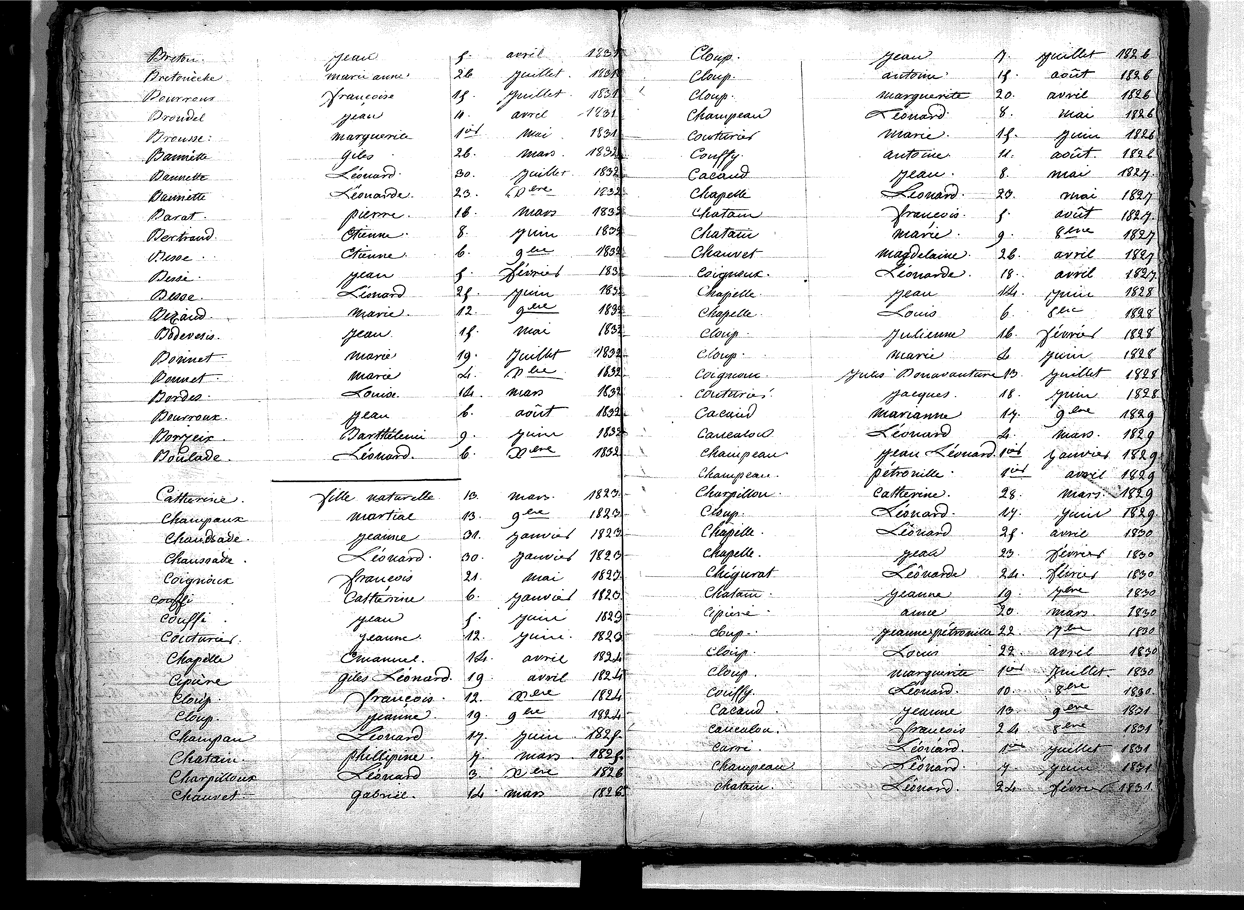 Breton. jean 5. avril 1831
Bretonèche marie anne. 26 juillet. 1831
Bourrous françoise 15. juillet. 1831
Broudel jean 11. avril 1831
Brousse. marguerite 1er mai. 1831
Bannette giles. 26. mars. 1832
Bannette Léonard. 30. juillet. 1832
Bannette Léonarde. 23. Xbre 1832
Barat. pierre. 16. mars 1832
Bertrand. Etienne. 8. juin 1832
Besse Etienne. 6. 9bre 1832
Besse. jean 5. février 1832
Besse. Léonard 25. juin 1832
Bezaud marie. 12. 9bre 1832
Bodevesis. jean. 15. mai 1832
Bonnet. marie 19. juillet 1832
Bonnet. marie 4. Xbre 1832
Bordes. Louise. 14. mars 1832
Bourroux. jean 6. août 1832
Borjeix. Barthélemi 9. juin 1832
Boulade. Léonard. 6. Xbre 1832
Catherine. fille naturelle 13. mars. 1823
Champaux martial 13. 9bre 1823
Chaussade. jeanne 31. janvier 1823
Chaussade. Léonard. 30. janvier 1823
Coignoux françois 21. mai 1823
Couffi Catherine 6. janvier 1823
Couffi. jean 5. juin 1823
Couturier. jeanne. 12. juin. 1823
Chapelle Emanuel. 14. avril 1824
Cipière giles Léonard. 19. avril 1824
Cloup. françois. 12. Xbre 1824
Cloup. jeanne. 19. 9bre 1824
Champau Léonard 17. juin 1825.
Chatain. phillipine 7. mars. 1825.
Charpilloux Léonard 3. Xbre 1826
Chauvet gabriel. 14. mars 1826
Cloup. jean 7. juillet 1826
Cloup. antoine. 15. août 1826
Cloup. marguerite 20. avril 1826
Champeau Léonard 8. mai 1826
Couturier marie. 15. juin 1826
Couffy. antoine 11. août. 1826
Cacaud jean. 8. mai 1827.
Chapelle Léonard 23. mai 1827
Chatain françois. 5. août 1827.
Chatain marie. 9. 8bre 1827
Chauvet magdelaine. 26. avril 1827
Coignoux. Léonarde. 18. avril 1827.
Chapelle. jean 14. juin 1828
Chapelle. Louis 6. 8bre 1828
Cloup. Julienne 16. février 1828
Cloup. marie 4. juin. 1828
Coignoux jules Bonavanture 13. juillet 1828
Couturier. jacques. 18. juin 1828.
Cacaud marianne 17. 9bre 1829
Caucalou Léonard 4. mars. 1829
Champeau jean Léonard 1er janvier 1829
Champeau. pétronille 1er avril 1829
Charpillou. Catherine. 28. mars. 1829
Cloup. Léonard. 17. juin 1829
Chapelle. Léonard 25. avril 1830
Chapelle. jean 23. février 1830
Chégurat Léonarde 24. février 1830
Chatain. jeanne 19. 7bre 1830
Cipière. anne 20 mars. 1830
Cloup. jeanne pétronille 22. 7bre 1830
Cloup. Louis 22. avril 1830
Cloup. marguerite 1er juillet. 1830
Couffy. Léonard. 10. 8bre 1830.
Cacaud. jeanne 13. 9bre 1831
Caucalou. françois 24. 8bre 1831
Carré. Léonard. 1er juillet 1831
Champeau Léonard. 7. juin. 1831
Chatain. Léonard. 24. février. 1831.